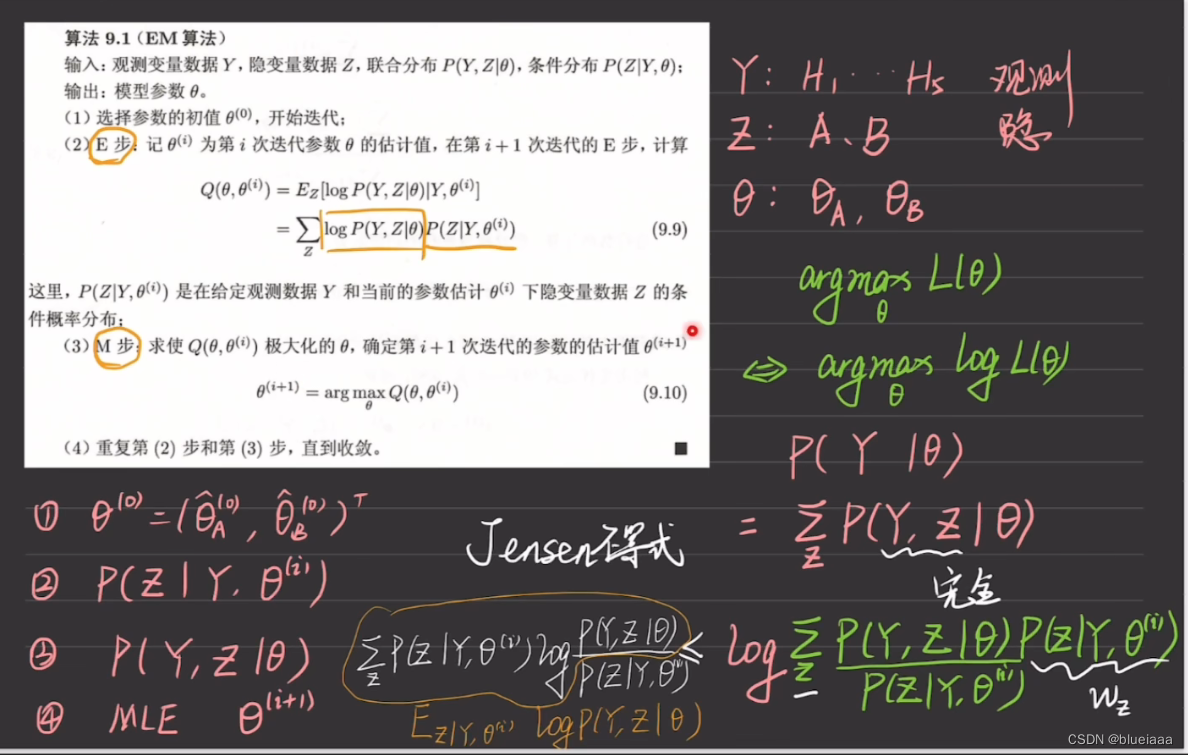 算法 9.1 (EM 算法)
输入: 观测变量数据 Y, 隐变量数据 Z, 联合分布 P(Y, Z|θ), 条件分布 P(Z|Y, θ);
输出: 模型参数 θ。
(1) 选择参数的初值 θ^(0), 开始迭代;
(2) E 步: 记 θ^(i) 为第 i 次迭代参数 θ 的估计值, 在第 i + 1 次迭代的 E 步, 计算
Q(θ, θ^(i)) = E_Z[log P(Y, Z|θ)|Y, θ^(i)]
= ∑_Z log P(Y, Z|θ)P(Z|Y, θ^(i)) (9.9)
这里, P(Z|Y, θ^(i)) 是在给定观测数据 Y 和当前的参数估计 θ^(i) 下隐变量数据 Z 的条
件概率分布;
(3) M 步: 求使 Q(θ, θ^(i)) 极大化的 θ, 确定第 i + 1 次迭代的参数的估计值 θ^(i+1)
θ^(i+1) = arg max_θ Q(θ, θ^(i)) (9.10)
(4) 重复第 (2) 步和第 (3) 步, 直到收敛。 ■
Y: H₁ ··· H₅ 观测
Z: A、B 隐
θ: θ_A, θ_B
argmax_θ L(θ)
⇔ argmax_θ log L(θ)
P(Y|θ)
= ∑_Z P(Y, Z|θ)
完全
① θ^(0) = (θ̂_A^(0), θ̂_B^(0))^T
② P(Z|Y, θ^(i))
③ P(Y, Z|θ)
④ MLE θ^(i+1)
Jensen不等式
∑_Z P(Z|Y, θ^(i)) log P(Y, Z|θ) / P(Z|Y, θ^(i)) ≤ log ∑_Z P(Y, Z|θ) / P(Z|Y, θ^(i)) P(Z|Y, θ^(i))
W_Z
E_{Z|Y, θ^(i)} log P(Y, Z|θ)
CSDN @blueiaaa